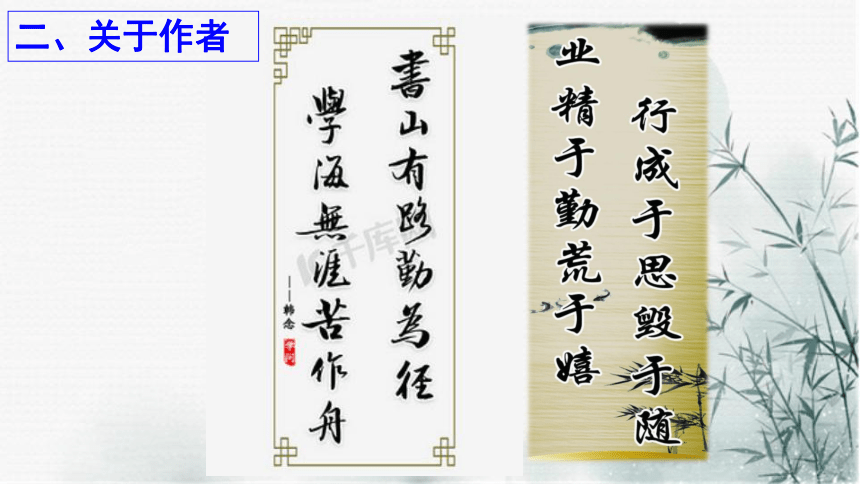 二、关于作者
書山有路勤為径
學海無涯苦作舟
——韩念
业精于勤荒于嬉
行成于思毁于随
千库网